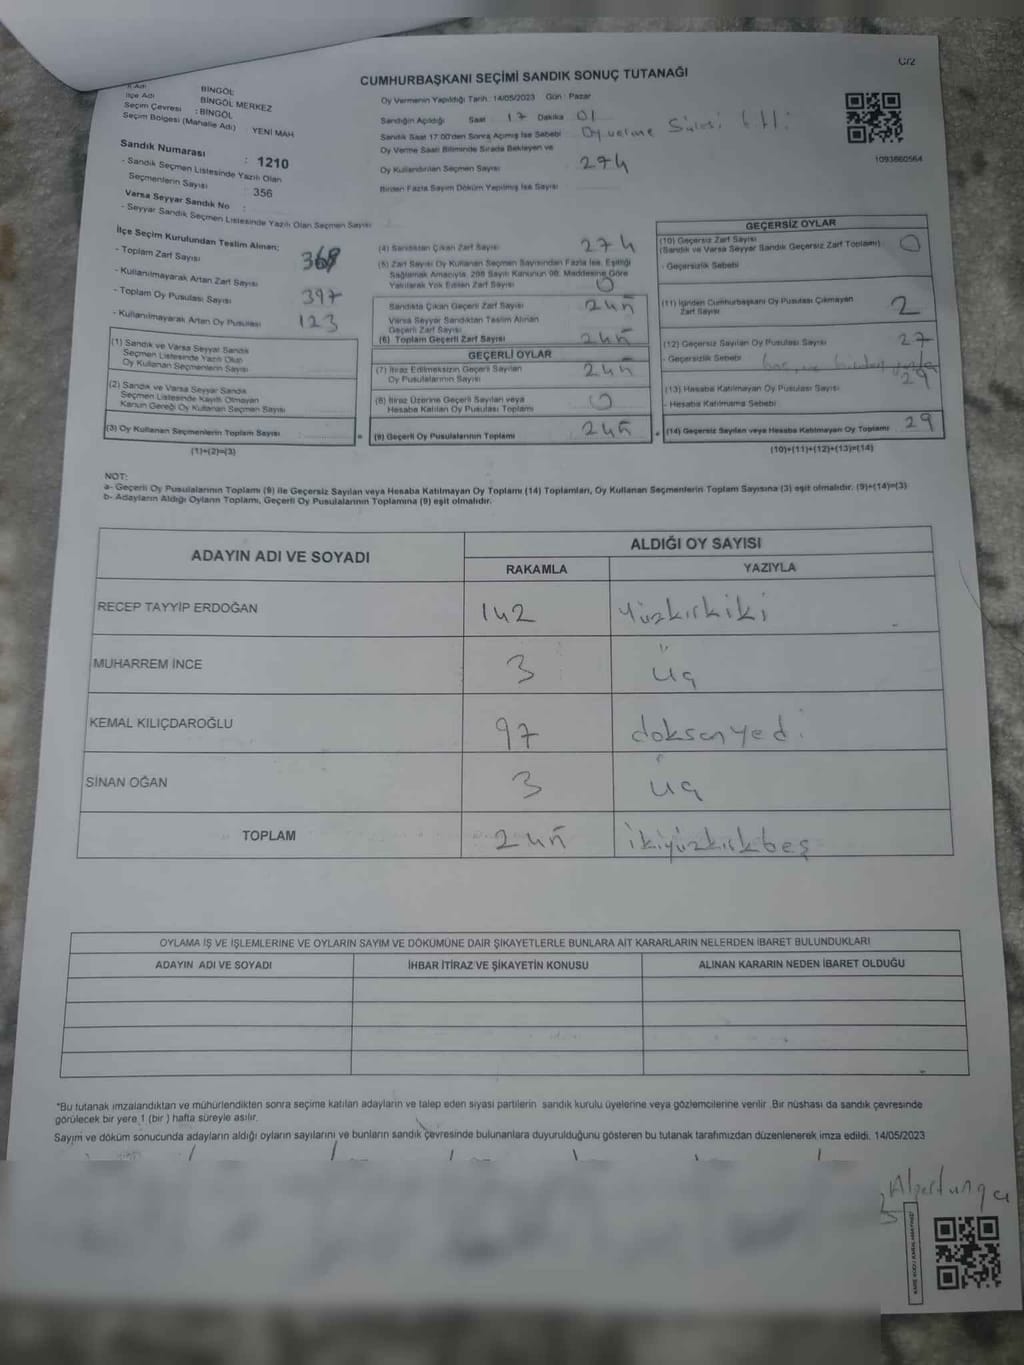 C/2
İl Adı BİNGÖL
İlçe Adı BİNGÖL MERKEZ
Seçim Çevresi : BİNGÖL
Seçim Bölgesi (Mahalle Adı) YENİ MAH
Sandık Numarası : 1210
- Sandık Seçmen Listesinde Yazılı Olan
Seçmenlerin Sayısı : 356
Varsa Seyyar Sandık No :
- Seyyar Sandık Seçmen Listesinde Yazılı Olan Seçmen Sayısı :
CUMHURBAŞKANI SEÇİMİ SANDIK SONUÇ TUTANAĞI
Oy Vermenin Yapıldığı Tarih: 14/05/2023 Gün : Pazar
Sandığın Açıldığı Saat 17 Dakika 01
Sandık Saat 17.00'den Sonra Açılmış İse Sebebi Oy verme Süresi bitti
Oy Verme Saati Bitiminde Sırada Bekleyen ve
Oy Kullandırılan Seçmen Sayısı 274
Birden Fazla Sayım Döküm Yapılmış İse Sayısı
1093860564
İlçe Seçim Kurulundan Teslim Alınan:
- Toplam Zarf Sayısı 368
- Kullanılmayarak Artan Zarf Sayısı
- Toplam Oy Pusulası Sayısı 397
- Kullanılmayarak Artan Oy Pusulası 123
(1) Sandık ve Varsa Seyyar Sandık
Seçmen Listesinde Yazılı Olup
Oy Kullanan Seçmenlerin Sayısı
(2) Sandık ve Varsa Seyyar Sandık
Seçmen Listesinde Kayıtlı Olmayan
Kanun Gereği Oy Kullanan Seçmen Sayısı
(3) Oy Kullanan Seçmenlerin Toplam Sayısı
(1)+(2)=(3)
(4) Sandıktan Çıkan Zarf Sayısı 274
(5) Zarf Sayısı Oy Kullanan Seçmen Sayısından Fazla İse, Eşitliği
Sağlamak Amacıyla, 298 Sayılı Kanunun 98. Maddesine Göre
Yakılarak Yok Edilen Zarf Sayısı 0
Sandıkta Çıkan Geçerli Zarf Sayısı 245
Varsa Seyyar Sandıktan Teslim Alınan
Geçerli Zarf Sayısı
(6) Toplam Geçerli Zarf Sayısı 245
GEÇERLİ OYLAR
(7) İtiraz Edilmeksizin Geçerli Sayılan
Oy Pusulalarının Sayısı 245
(8) İtiraz Üzerine Geçerli Sayılan veya
Hesaba Katılan Oy Pusulası Toplamı 0
(9) Geçerli Oy Pusulalarının Toplamı 245
GEÇERSİZ OYLAR
(10) Geçersiz Zarf Sayısı
(Sandık ve Varsa Seyyar Sandık Geçersiz Zarf Toplamı) 0
- Geçersizlik Sebebi
(11) İçinden Cumhurbaşkanı Oy Pusulası Çıkmayan
Zarf Sayısı 2
(12) Geçersiz Sayılan Oy Pusulası Sayısı 27
- Geçersizlik Sebebi
(13) Hesaba Katılmayan Oy Pusulası Sayısı 29
- Hesaba Katılmama Sebebi
(14) Geçersiz Sayılan veya Hesaba Katılmayan Oy Toplamı 29
(10)+(11)+(12)+(13)=(14)
NOT:
a- Geçerli Oy Pusulalarının Toplamı (9) ile Geçersiz Sayılan veya Hesaba Katılmayan Oy Toplamı (14) Toplamları, Oy Kullanan Seçmenlerin Toplam Sayısına (3) eşit olmalıdır. (9)+(14)=(3)
b- Adayların Aldığı Oyların Toplamı, Geçerli Oy Pusulalarının Toplamına (9) eşit olmalıdır.
ADAYIN ADI VE SOYADI ALDIĞI OY SAYISI
RAKAMLA YAZIYLA
RECEP TAYYİP ERDOĞAN 142 yüzkırkiki
MUHARREM İNCE 3 üç
KEMAL KILIÇDAROĞLU 97 doksanyedi
SİNAN OĞAN 3 üç
TOPLAM 245 ikiyüzkırkbeş
OYLAMA İŞ VE İŞLEMLERİNE VE OYLARIN SAYIM VE DÖKÜMÜNE DAİR ŞİKAYETLERLE BUNLARA AİT KARARLARIN NELERDEN İBARET BULUNDUKLARI
ADAYIN ADI VE SOYADI İHBAR İTİRAZ VE ŞİKAYETİN KONUSU ALINAN KARARIN NEDEN İBARET OLDUĞU
*Bu tutanak imzalandıktan ve mühürlendikten sonra seçime katılan adayların ve talep eden siyasi partilerin sandık kurulu üyelerine veya gözlemcilerine verilir. Bir nüshası da sandık çevresinde
görülecek bir yere 1 (bir) hafta süreyle asılır.
Sayım ve döküm sonucunda adayların aldığı oyların sayılarını ve bunların sandık çevresinde bulunanlara duyurulduğunu gösteren bu tutanak tarafımızdan düzenlenerek imza edildi. 14/05/2023